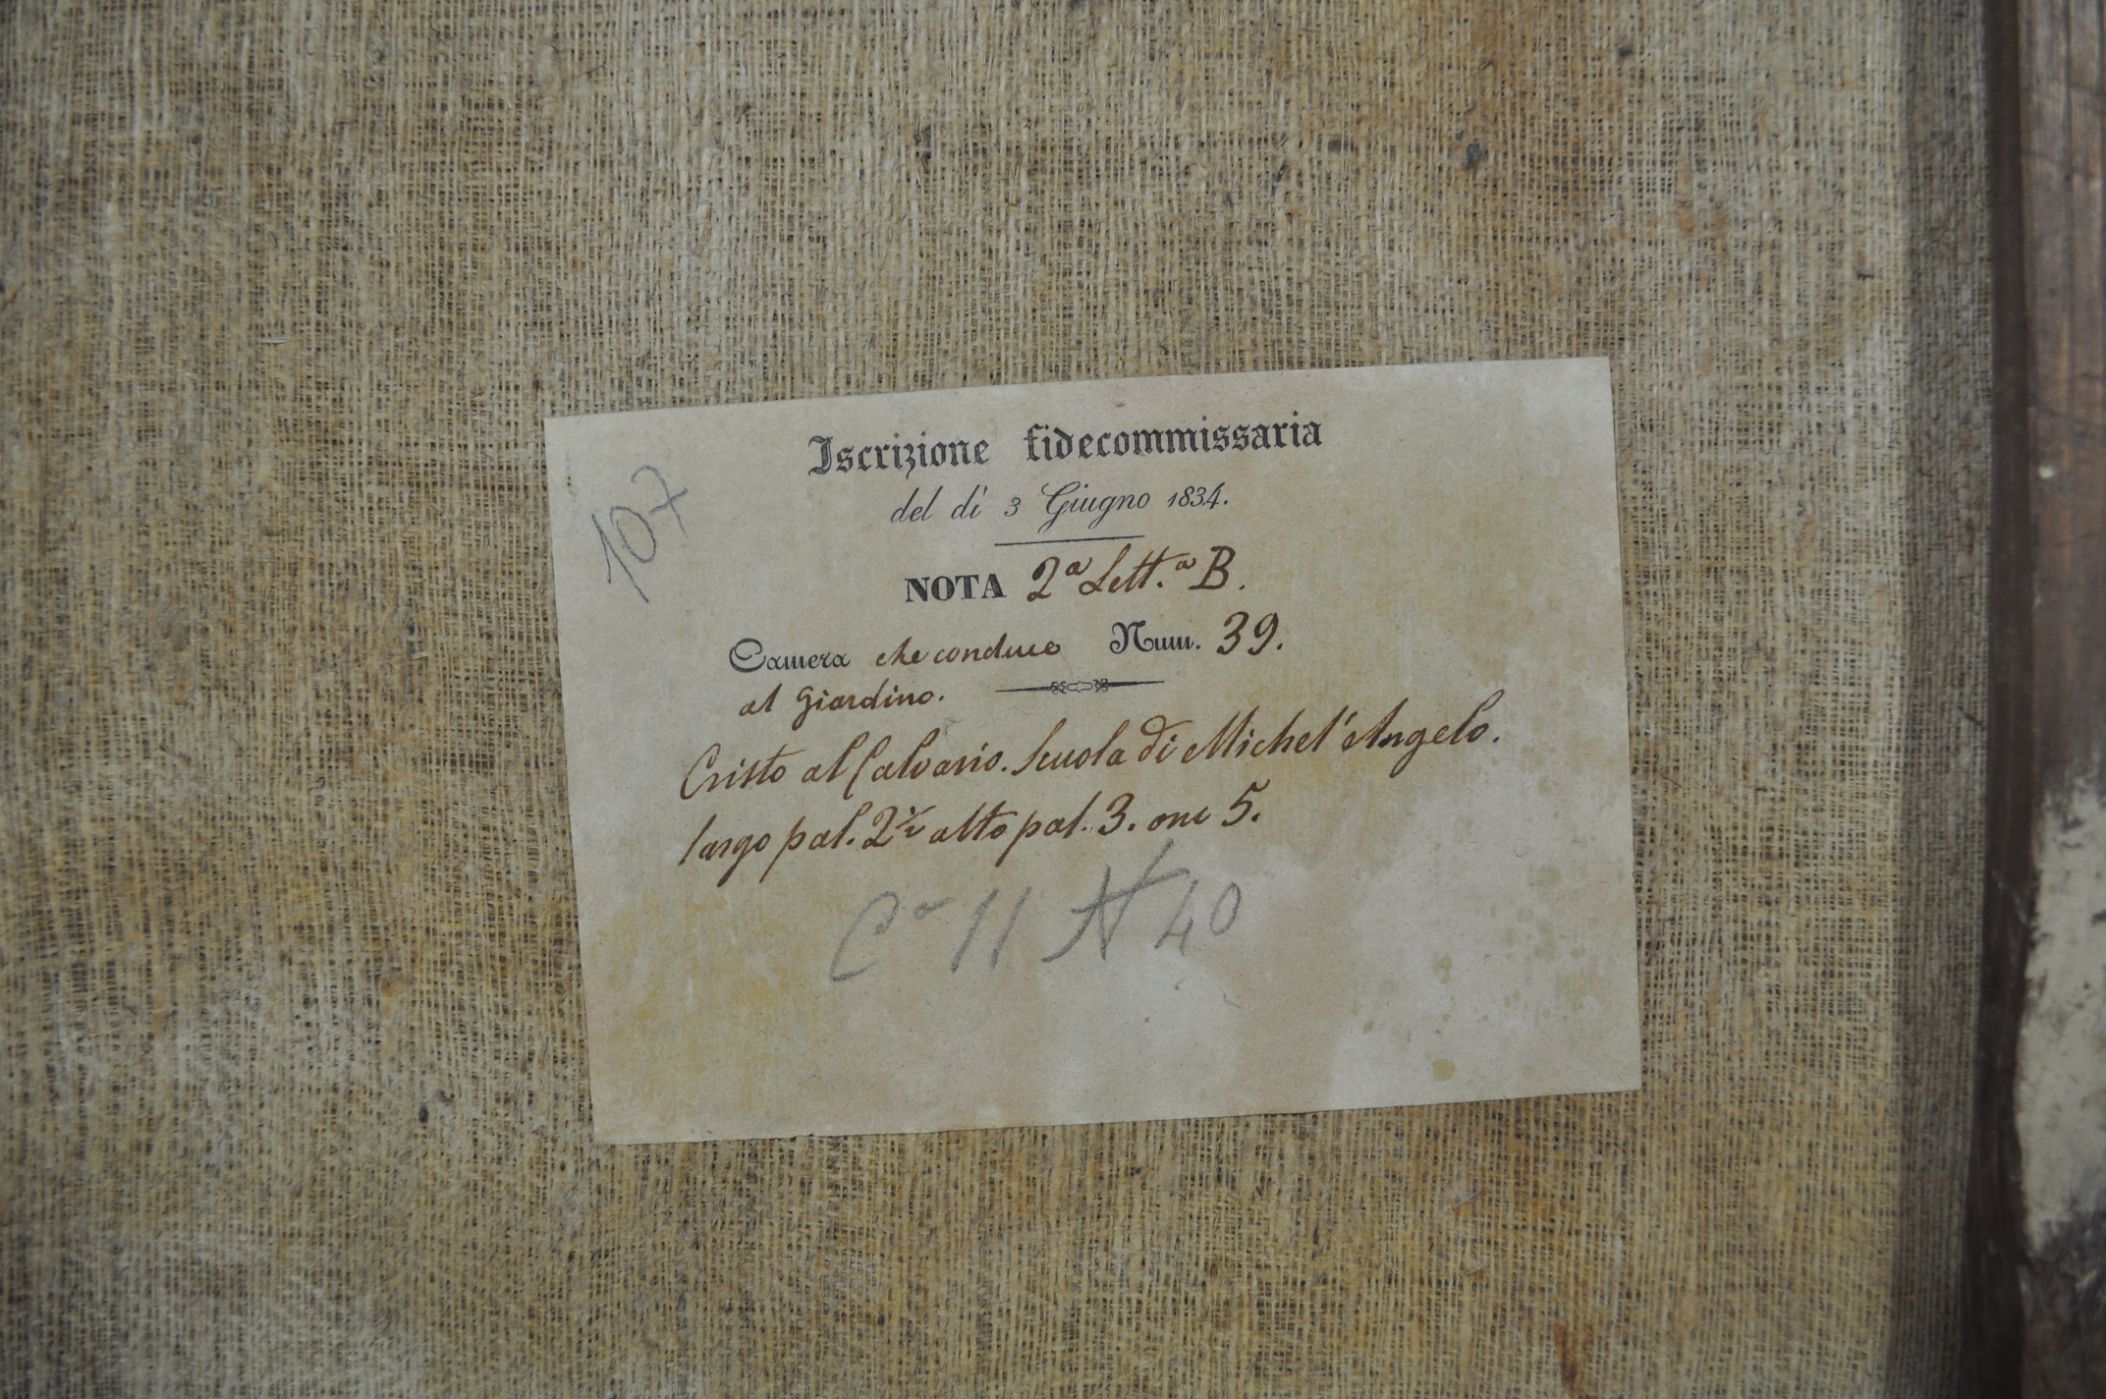 107
Iscrizione fidecommissaria
del dì 3 Giugno 1834.
NOTA 2ª Lett.ª B.
Camera che conduce Num. 39.
al Giardino.
Cristo al Calvario. Scuola di Michel'Angelo.
largo pal. 2½ alto pal. 3. onc 5.
Cª 11 N 40